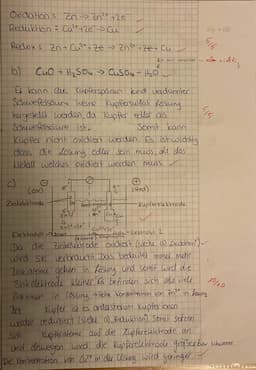 Oxidation: Zn → Zn²⁺ + 2e⁻
Reduktion: Cu²⁺ + 2e⁻ → Cu
5/5
Redox: Zn + Cu²⁺ + 2e → Zn²⁺ + 2e + Cu
b) CuO + H₂SO₄ → CuSO₄ + H₂O
Es kann aus Kupferspänen und verdünnter
Schwefelsäure keine Kupfersulfat Lösung
hergestellt werden, da Kupfer edler als
5/5
Schwefelsäure ist. Somit kann
Kupfer nicht oxidiert werden. Es ist wichtig
dass die Lösung edler sein muss, als das
Metall welches oxidiert werden muss.
c)
(-) (+)
(Ox) (Red)
Zinkelektrode Kupferelektrode
Da die Zinkelektrode oxidiert (siehe a) Oxidation)
wird sie verbraucht. Das bedeutet immer mehr
Zinkatome gehen in Lösung und somit wird die
Zinkelektrode kleiner. Es befinden sich also viele
in Lösung
Kupfer ist es andersherum. Kupferionen
werden reduziert (siehe a) Reduktion). Somit setzen
sich Kupferatome auf die Kupferelektrode an
und deswegen wird die Kupferelektrode
Die Konzentration von Cu²⁺ in der Lösung wird geringer.